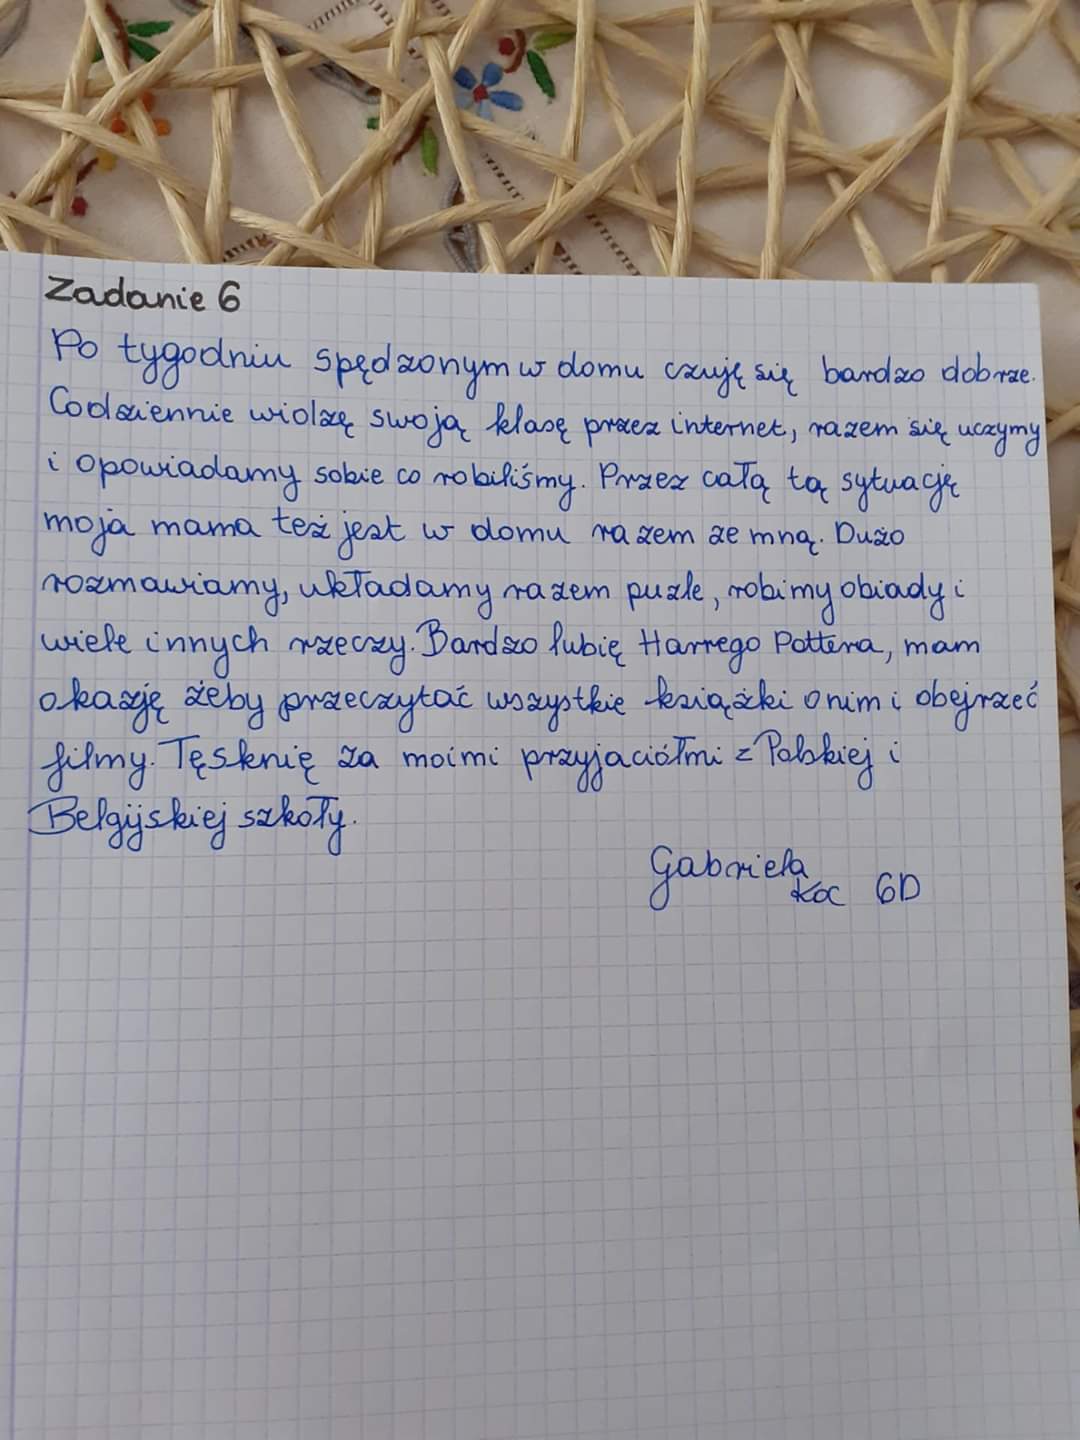 Zadanie 6
Po tygodniu spędzonym w domu czuję się bardzo dobrze.
Codziennie widzę swoją klasę przez internet, razem się uczymy
i opowiadamy sobie co robiliśmy. Przez całą tą sytuację
moja mama też jest w domu razem ze mną. Dużo
rozmawiamy, układamy razem puzle, robimy obiady i
wiele innych rzeczy. Bardzo lubię Harrego Pottera, mam
okazję żeby przeczytać wszystkie książki o nim i obejrzeć
filmy. Tęsknię za moimi przyjaciółmi z Polskiej i
Belgijskiej szkoły.
Gabriela
Koc 6D